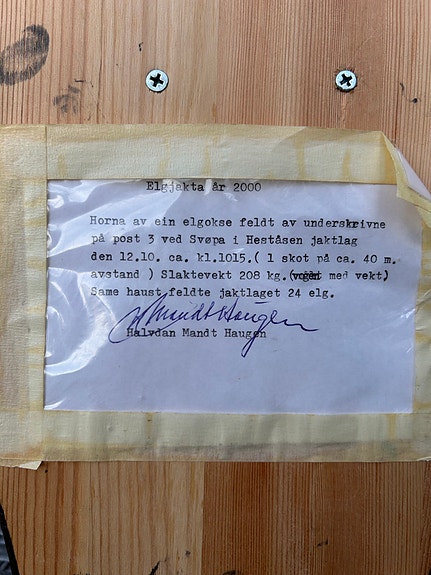 Elgjakta år 2000
Horna av ein elgokse feldt av underskrivne
på post 3 ved Svøpa i Heståsen jaktlag
den 12.10. ca. kl.1015.( 1 skot på ca. 40 m.
avstand ) Slaktevekt 208 kg.( med vekt)
Same haust feldte jaktlaget 24 elg.
Mandt Haugen
Halvdan Mandt Haugen